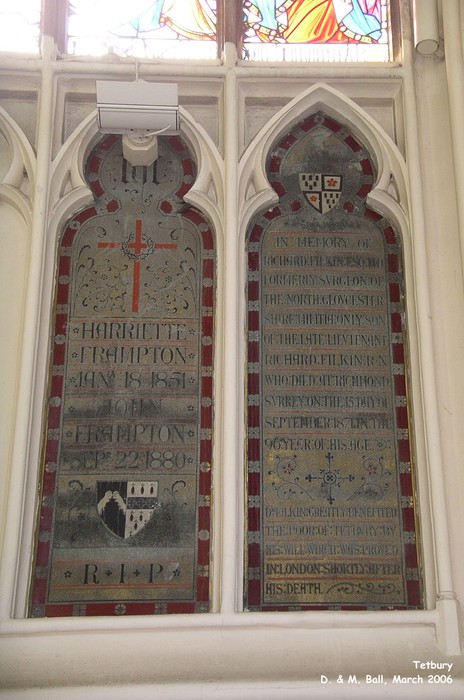 IHS
HARRIETTE
FRAMPTON
JANY 18 1851
JOHN
FRAMPTON
SEPT 22 1880
R I P
IN MEMORY OF
RICHARD FILKIN ESQ M D
FORMERLY SVRGEON OF
THE NORTH GLOVCESTER
SHIRE MILITIA ONLY SON
OF THE LATE LIEVTENANT
RICHARD FILKIN R N
WHO DIED AT RICHMOND
SVRREY ON THE 15TH DAY OF
SEPTEMBER IN THE
96 YEAR OF HIS AGE
DR FILKIN GREATLY BENEFITED
THE POOR OF TETBVRY BY
HIS WILL WHICH WAS PROVED
IN LONDON SHORTLY AFTER
HIS DEATH
Tetbury
D. & M. Ball, March 2006